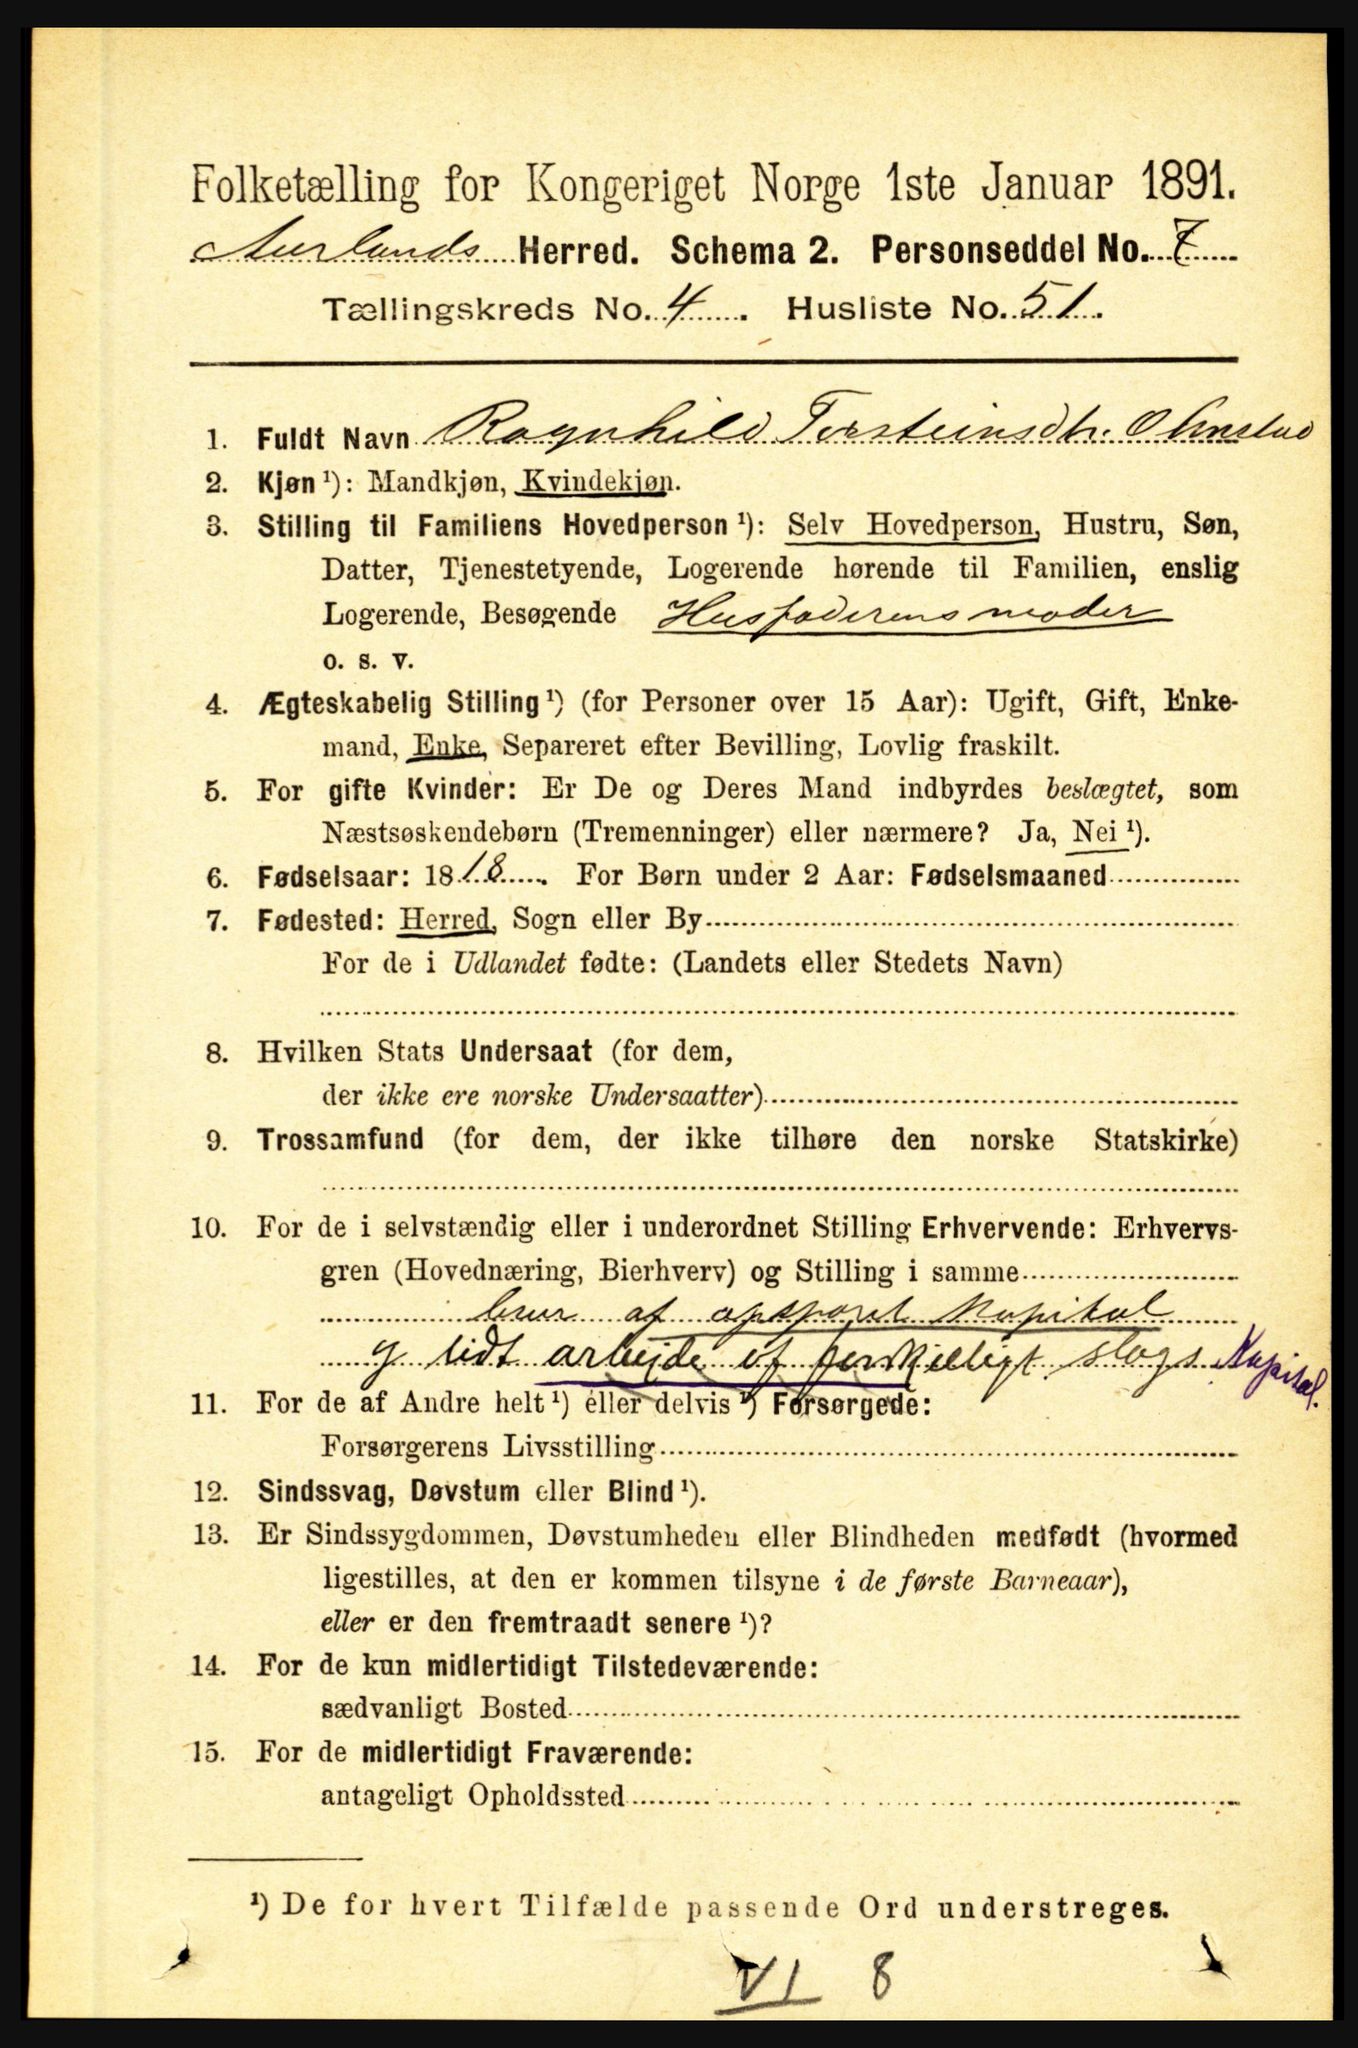 Folketælling for Kongeriget Norge 1ste Januar 1891.
Aurlands Herred. Schema 2. Personseddel No. 7
Tællingskreds No. 4. Husliste No. 51.
1. Fuldt Navn Ragnhild Torsteinsdtr. Ohnstad
2. Kjøn ¹): Mandkjøn, Kvindekjøn.
3. Stilling til Familiens Hovedperson ¹): Selv Hovedperson, Hustru, Søn,
Datter, Tjenestetyende, Logerende hørende til Familien, enslig
Logerende, Besøgende Husfaderens moder
o. s. v.
4. Ægteskabelig Stilling ¹) (for Personer over 15 Aar): Ugift, Gift, Enke-
mand, Enke, Separeret efter Bevilling, Lovlig fraskilt.
5. For gifte Kvinder: Er De og Deres Mand indbyrdes beslægtet, som
Næstsøskendebørn (Tremenninger) eller nærmere? Ja, Nei ¹).
6. Fødselsaar: 1818. For Børn under 2 Aar: Fødselsmaaned
7. Fødested: Herred, Sogn eller By
For de i Udlandet fødte: (Landets eller Stedets Navn)
8. Hvilken Stats Undersaat (for dem,
der ikke ere norske Undersaatter)
9. Trossamfund (for dem, der ikke tilhøre den norske Statskirke)
10. For de i selvstændig eller i underordnet Stilling Erhvervende: Erhvervs-
gren (Hovednæring, Bierhverv) og Stilling i samme
lever af opsparet Kapital
og lidt arbejde af forskjelligt slags Kapital.
11. For de af Andre helt ¹) eller delvis ¹) Forsørgede:
Forsørgerens Livsstilling
12. Sindssvag, Døvstum eller Blind ¹).
13. Er Sindssygdommen, Døvstumheden eller Blindheden medfødt (hvormed
ligestilles, at den er kommen tilsyne i de første Barneaar),
eller er den fremtraadt senere ¹)?
14. For de kun midlertidigt Tilstedeværende:
sædvanligt Bosted
15. For de midlertidigt Fraværende:
antageligt Opholdssted
¹) De for hvert Tilfælde passende Ord understreges.
VI 8